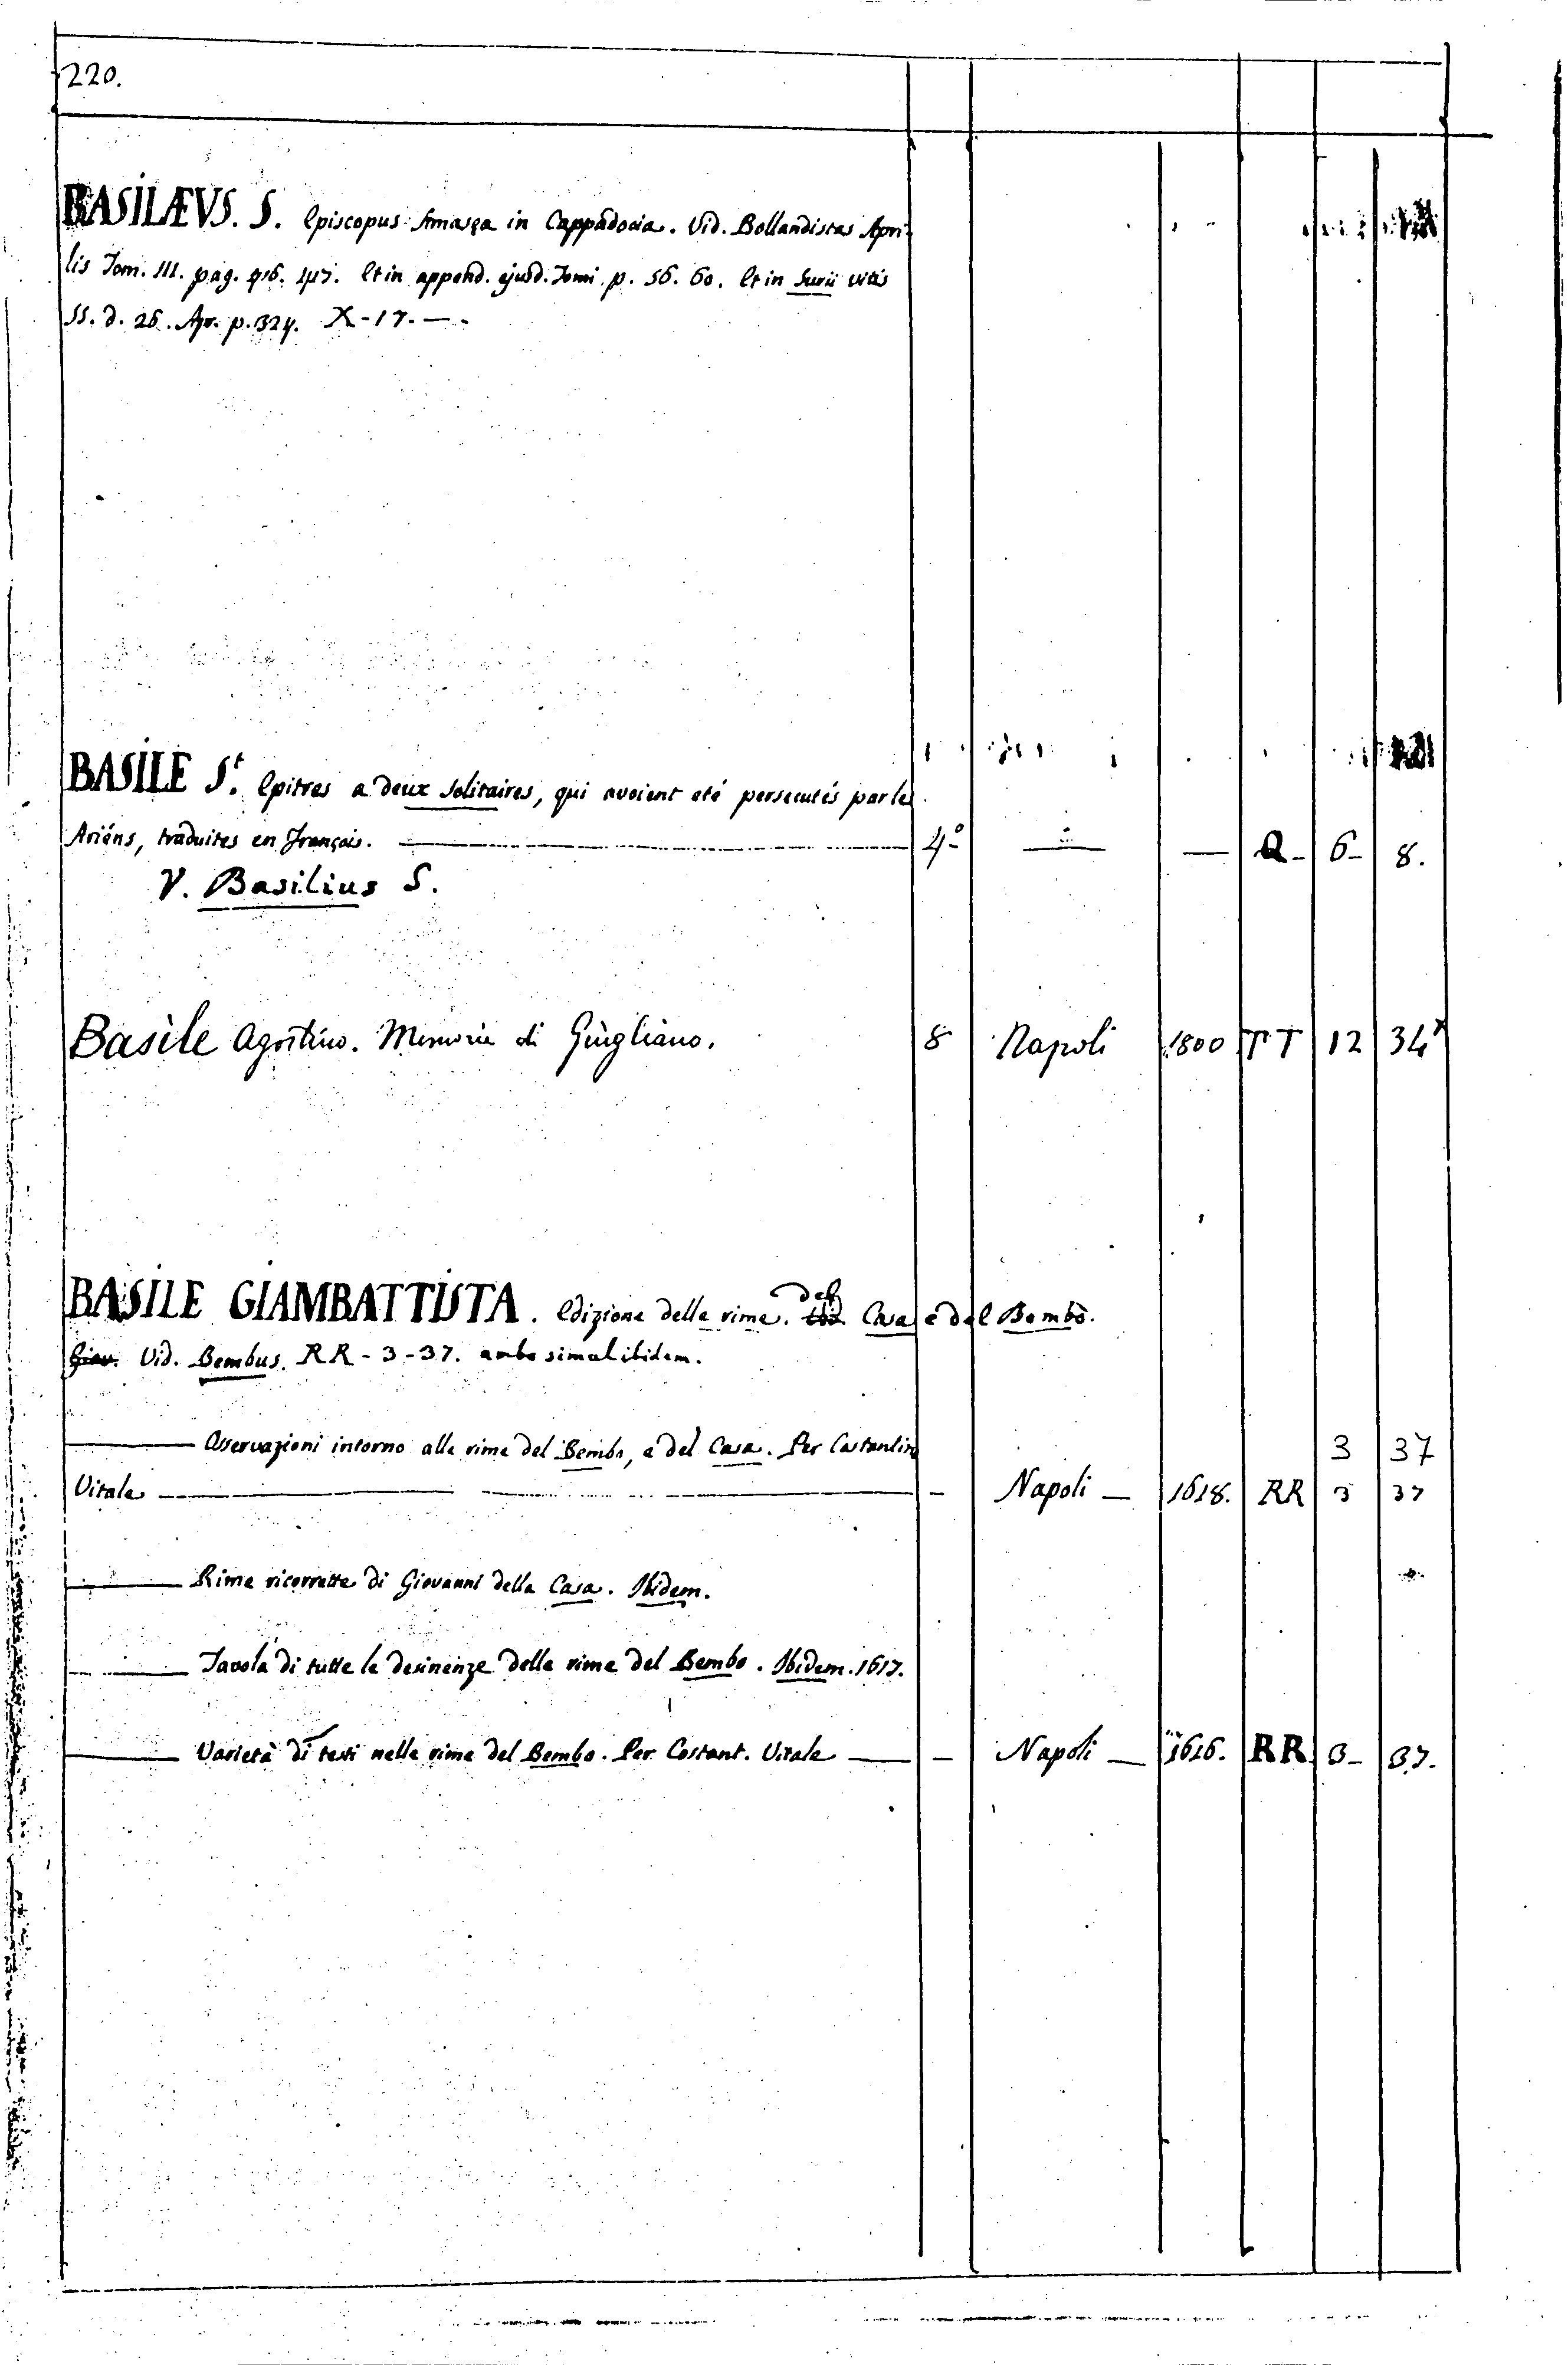 220.
BASILÆVS. S. Episcopus Amasea in Cappadocia. Vid. Bollandistas Apri-
lis Tom. III. pag. 416. 417. Et in append. ejusd. Tomi p. 56. 60. Et in Surii vitis
SS. d. 26. Apr. p. 324. X - 17. —.
BASILE St. Epitres a deux Solitaires, qui avoient eté persecutés par les
Ariéns, traduites en François. — 4º — — — Q - 6 - 8.
V. Basilius S.
Basile Agostino. Memorie di Giugliano. 8 Napoli 1800 TT 12 34
BASILE GIAMBATTISTA. Edizione delle rime. del Casa e del Bembo.
Vid. Bembus. RR - 3 - 37. ambo simul ibidem.
— Osservazioni intorno alle rime del Bembo, e del Casa. Per Costantin 3 37
Vitale — - Napoli — 1618. RR 3 37
— Rime ricorrette di Giovanni della Casa. Ibidem.
— Tavola di tutte le desinenze delle rime del Bembo. Ibidem. 1617.
— Varietà di testi nelle rime del Bembo. Per Costant. Vitale — - Napoli — 1616. RR 3 - 37.